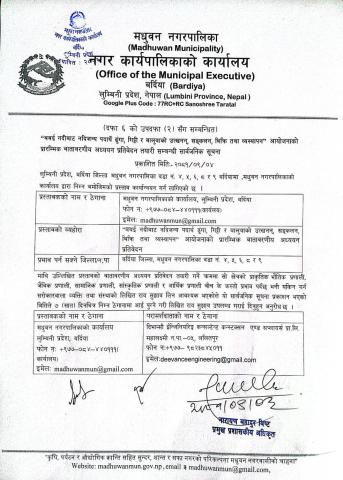 मधुवन नगरपालिका
(Madhuwan Municipality)
नगर कार्यपालिकाको कार्यालय
(Office of the Municipal Executive)
बर्दिया (Bardiya)
लुम्बिनी प्रदेश, नेपाल (Lumbini Province, Nepal)
Google Plus Code : 77RC+RC Sanoshree Taratal
(दफा ६ को उपदफा (२) सँग सम्बन्धित)
"बबई नदीबाट नदिजन्य पदार्थ ढुंगा, गिट्टी र बालुवाको उत्खनन्, सङ्कलन, बिक्रि तथा व्यवस्थापन" आयोजनाको
प्रारम्भिक वातावरणीय अध्ययन प्रतिवेदन तयारी सम्बन्धी सार्वजनिक सूचना
प्रकाशित मिति:-२०८१/०९/०४
लुम्बिनी प्रदेश, बर्दिया जिल्ला मधुवन नगरपालिका वडा नं. ४, ५, ६, ८ र ९ बर्दियामा ,मधुवन नगरपालिकाको
कार्यालय द्वारा निम्न बमोजिमको प्रस्ताव कार्यान्वयन गर्न लागिएको छ ।
प्रस्तावकको नाम र ठेगाना
मधुवन नगरपालिकाको कार्यालय, लुम्बिनी प्रदेश, बर्दिया
फोन नः +९७७-०८४-४४०१११(कार्यालय)
इमेल: madhuwanmun@gmail.com
प्रस्तावको व्यहोरा
"बबई नदीबाट नदिजन्य पदार्थ ढुंगा, गिट्टी र बालुवाको उत्खनन्, सङ्कलन,
बिक्रि तथा व्यवस्थापन" आयोजनाको प्रारम्भिक वातावरणीय अध्ययन
प्रतिवेदन
प्रभाव पर्न सक्ने जिल्ला/न.पा
बर्दिया जिल्ला, मधुवन नगरपालिका वडा नं. ४, ५, ६, ८ र ९
माथि उल्लिखित प्रस्तावको वातावरणीय अध्ययन प्रतिवेदन तयारी गर्ने क्रममा सो क्षेत्रको प्राकृतिक भौतिक प्रणाली,
जैविक प्रणाली, सामाजिक प्रणाली, सांस्कृतिक प्रणाली र आर्थिक प्रणाली बीच के कस्तो प्रभाव पर्दछ भनी यकिन गर्न
सरोकारवाला व्यक्ति तथा संस्थाको लिखित राय सुझाव लिन आवश्यक भएकोले यो सार्वजनिक सूचना प्रकाशन भएको
मितिले ७ (सात) दिनभित्र निम्न ठेगानामा आई पुग्ने गरी लिखित राय सुझाव उपलव्ध गराई दिनुहुन अनुरोध छ ।
प्रस्तावकको नाम र ठेगाना
परामर्शदाताको नाम र ठेगाना
मधुवन नगरपालिकाको कार्यालय
लुम्बिनी प्रदेश, बर्दिया
फोन नः +९७७-०८४-४४०१११(
कार्यालय)
इमेल: madhuwanmun@gmail.com
इन्जिनियरिङ्ग कन्सल्टेन्ट कन्स्ट्रक्सन एण्ड सप्लायर्स प्रा.लि.
महालक्ष्मी न.पा.-०३, ललितपुर
इमेल:deevanceengineering@gmail.com
नारायण बहादुर बिष्ट
प्रमुख प्रशासकीय अधिकृत
"कृषि, पर्यटन र औद्योगिक क्रान्ति सहित सुन्दर, शान्त र सफा नगरको परिकल्पना मधुवन नगरवासीको चाहना"
Website: madhuwanmun.gov.np, email : madhuwanmun@gmail.com